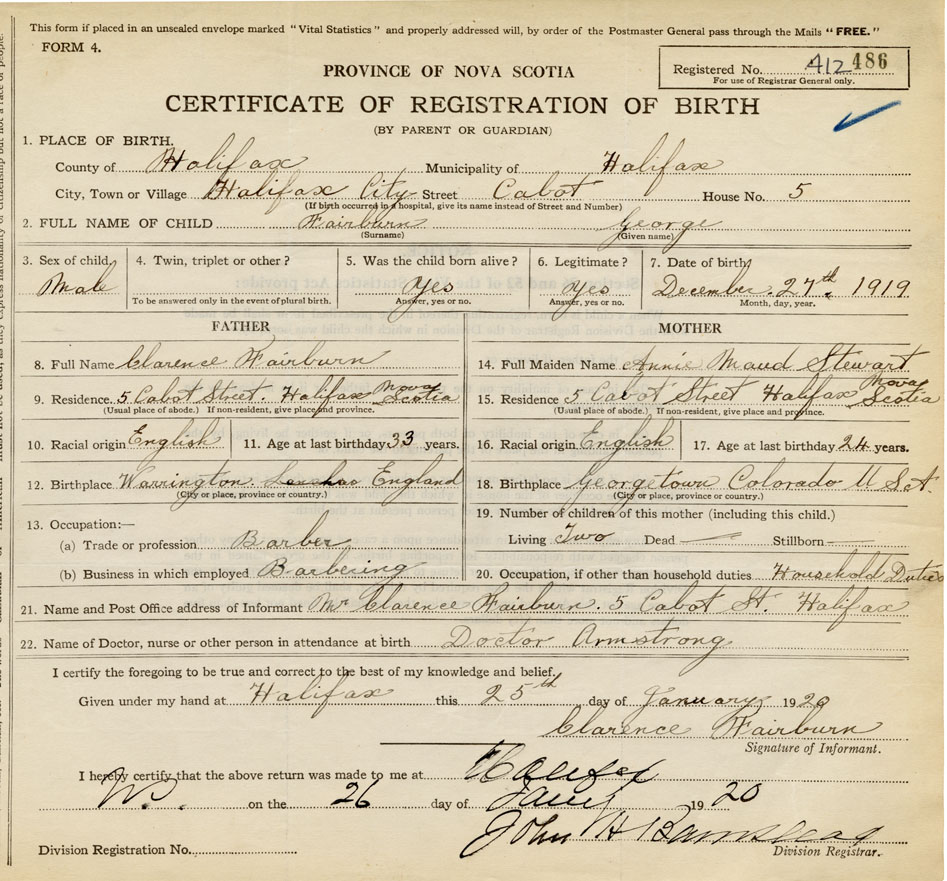 This form if placed in an unsealed envelope marked "Vital Statistics" and properly addressed will, by order of the Postmaster General pass through the Mails "FREE."
FORM 4.
PROVINCE OF NOVA SCOTIA
Registered No. 412 486
For use of Registrar General only.
CERTIFICATE OF REGISTRATION OF BIRTH
(BY PARENT OR GUARDIAN)
1. PLACE OF BIRTH.
County of Halifax Municipality of Halifax
City, Town or Village Halifax City Street Cabot House No. 5
(If birth occurred in a hospital, give its name instead of Street and Number)
2. FULL NAME OF CHILD Fairburn George
(Surname) (Given name)
3. Sex of child, 4. Twin, triplet or other? 5. Was the child born alive? 6. Legitimate? 7. Date of birth
Male Yes Yes December 27th 1919
To be answered only in the event of plural birth. Answer, yes or no. Answer, yes or no. Month, day, year.
FATHER MOTHER
8. Full Name Clarence Fairburn 14. Full Maiden Name Annie Maud Stewart
9. Residence. 5 Cabot Street. Halifax Nova Scotia 15. Residence 5 Cabot Street Halifax Nova Scotia
(Usual place of abode.) If non-resident, give place and province. (Usual place of abode.) If non-resident, give place and province.
10. Racial origin English 11. Age at last birthday 33 years. 16. Racial origin English 17. Age at last birthday 24 years.
12. Birthplace Warrington England 18. Birthplace Georgetown Colorado U S A.
(City or place, province or country.) (City or place, province or country.)
13. Occupation:— 19. Number of children of this mother (including this child.)
(a) Trade or profession Barber Living Two Dead — Stillborn —
(b) Business in which employed Barbering 20. Occupation, if other than household duties Household Duties
21. Name and Post Office address of Informant Mr Clarence Fairburn. 5 Cabot St. Halifax
22. Name of Doctor, nurse or other person in attendance at birth Doctor Armstrong
I certify the foregoing to be true and correct to the best of my knowledge and belief.
Given under my hand at Halifax this 25th day of January 1920
Clarence Fairburn
Signature of Informant.
I hereby certify that the above return was made to me at Halifax
on the 26 day of Jany 1920
John H
Division Registration No. Division Registrar.